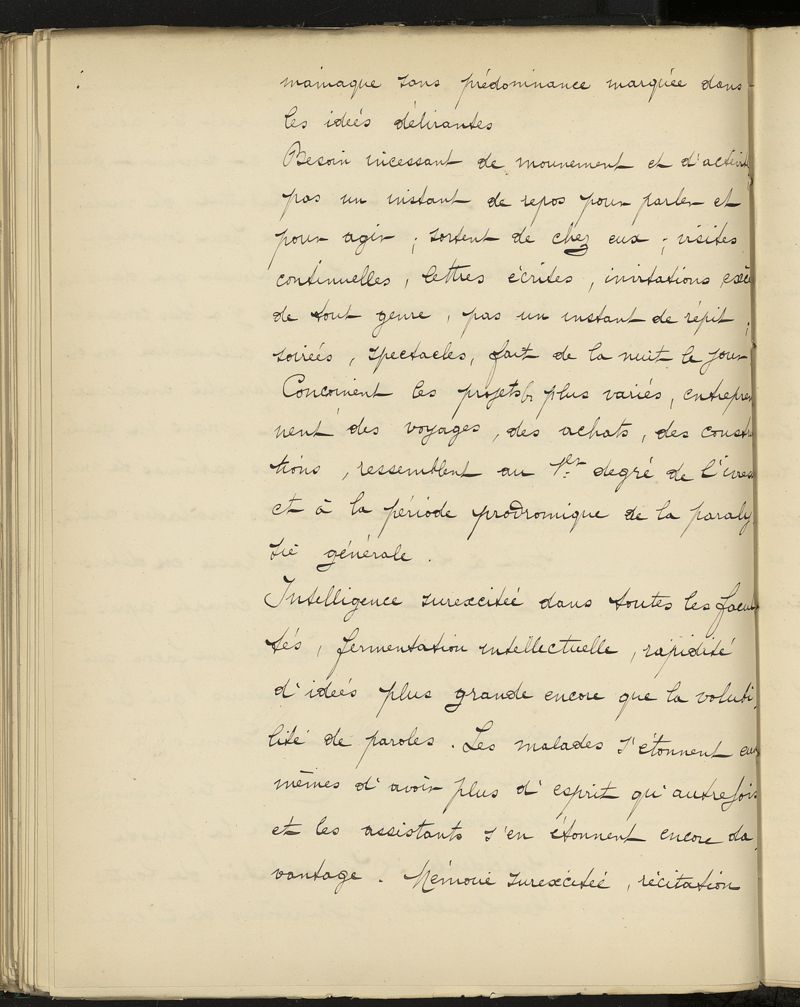 maniaque sans prédominance marquée dans
les ideés délirantes
Besoin incessant de mouvement et d'activité
pas un instant de repos pour parler et
pour agir ; sortent de chez eux ; visites
continuelles, lettres écrites, invitations
de tout genre, pas un instant de répit,
soireés, spectacles, fait de la nuit le jour
Concoivent les projets les plus variés, entrepren
nent des voyages, des achats, des constr
tions, ressemblent au 1er degré de l'ivresse
et à la période prodromique de la paraly
sie générale.
Intelligence surexciteé dans toutes les facul
tés, fermentation intellectuelle, rapidité
d'ideés plus grande encore que la volubi
lité de paroles. Les malades s'étonnent eux
mêmes d'avoir plus d'esprit qu'autrefois
et les assistants s'en étonnent encore da
vantage. Mémoire surexciteé, récitation